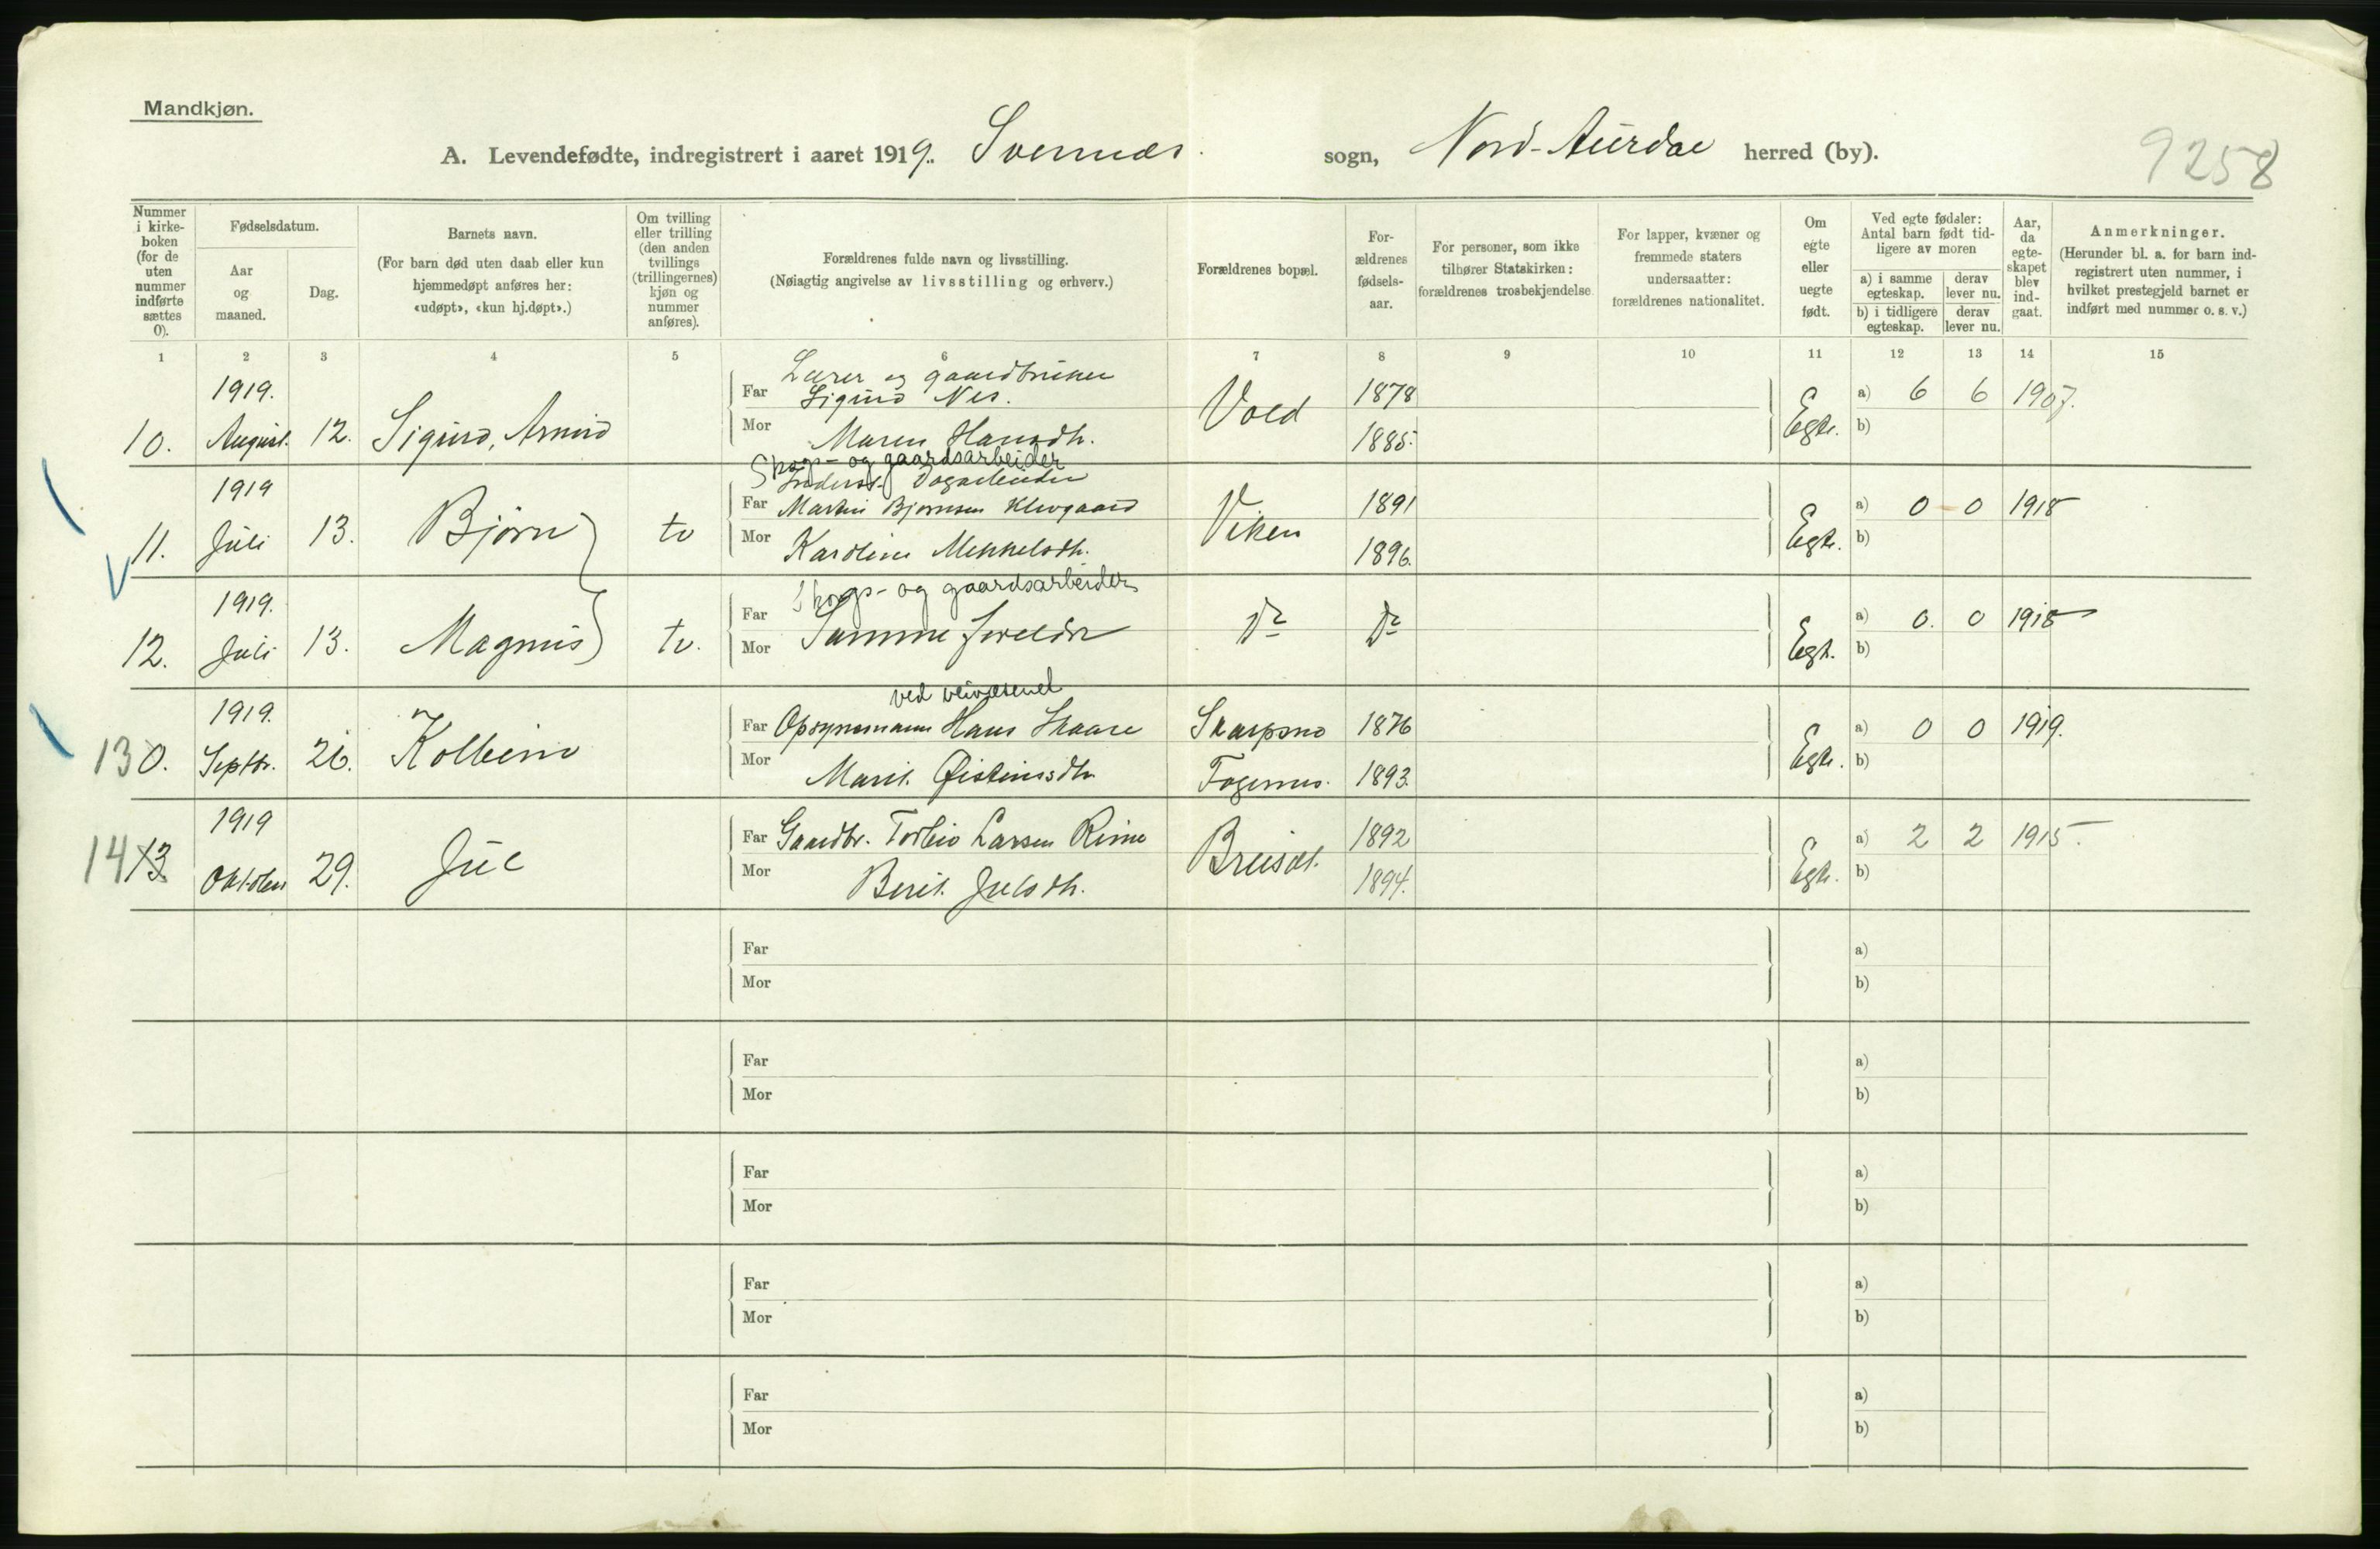 Mandkjøn.
A. Levendefødte, indregistrert i aaret 1919. Svennæs sogn, Nord-Aurdal herred (by).
9258
Nummer i kirke-boken (for de uten nummer indførte sættes 0).
Fødselsdatum.
Aar og maaned.
Dag.
Barnets navn.
(For barn død uten daab eller kun hjemmedøpt anføres her: «udøpt», «kun hj.døpt».)
Om tvilling eller trilling (den anden tvillings (trillingernes) kjøn og nummer anføres).
Forældrenes fulde navn og livsstilling.
(Nøiagtig angivelse av livsstilling og erhverv.)
Forældrenes bopæl.
For-ældrenes fødsels-aar.
For personer, som ikke tilhører Statskirken: forældrenes trosbekjendelse.
For lapper, kvæner og fremmede staters undersaatter: forældrenes nationalitet.
Om egte eller uegte født.
Ved egte fødsler: Antal barn født tid-ligere av moren
a) i samme egteskap. derav lever nu.
b) i tidligere egteskap. derav lever nu.
Aar, da egte-skapet blev ind-gaat.
Anmerkninger.
(Herunder bl. a. for barn ind-registrert uten nummer, i hvilket prestegjeld barnet er indført med nummer o. s. v.)
1 2 3 4 5 6 7 8 9 10 11 12 13 14 15
Lærer og gaardbruker
1919. Far Sigurd Nes. 1878 a) 6 6 1907.
10. August. 12. Sigurd, Arnvid Mor Maren Hansdtr. Vold 1885. Egte. b)
Skogs- og gaardsarbeider
Inderst. Dagarbeider
1919 Far Martin Bjørnsen Klevgaard 1891 a) 0 0 1918
11. Juli 13. Bjørn tv Mor Karoline Mikkelsdtr. Viken 1896. Egte. b)
Skogs- og gaardsarbeider
1919. Far Samme foreldre Do Do a) 0. 0 1918
12. Juli 13. Magnus tv. Mor Egt. b)
ved veivæsenet
1919. Far Opsynsmann Hans Skaare Skarpsno 1876 a) 0 0 1919.
130. Septbr. 26. Kolbein Mor Marit Øisteinsdtr Fagernes. 1893. Egte. b)
1919 Far Gaardbr. Torleiv Larsen Rime 1892 a) 2 2 1915.
14 13 Oktober 29. Jul Mor Berit Julsdtr. Breisæt. 1894. Egte. b)
Far a)
Mor b)
Far a)
Mor b)
Far a)
Mor b)
Far a)
Mor b)
Far a)
Mor b)